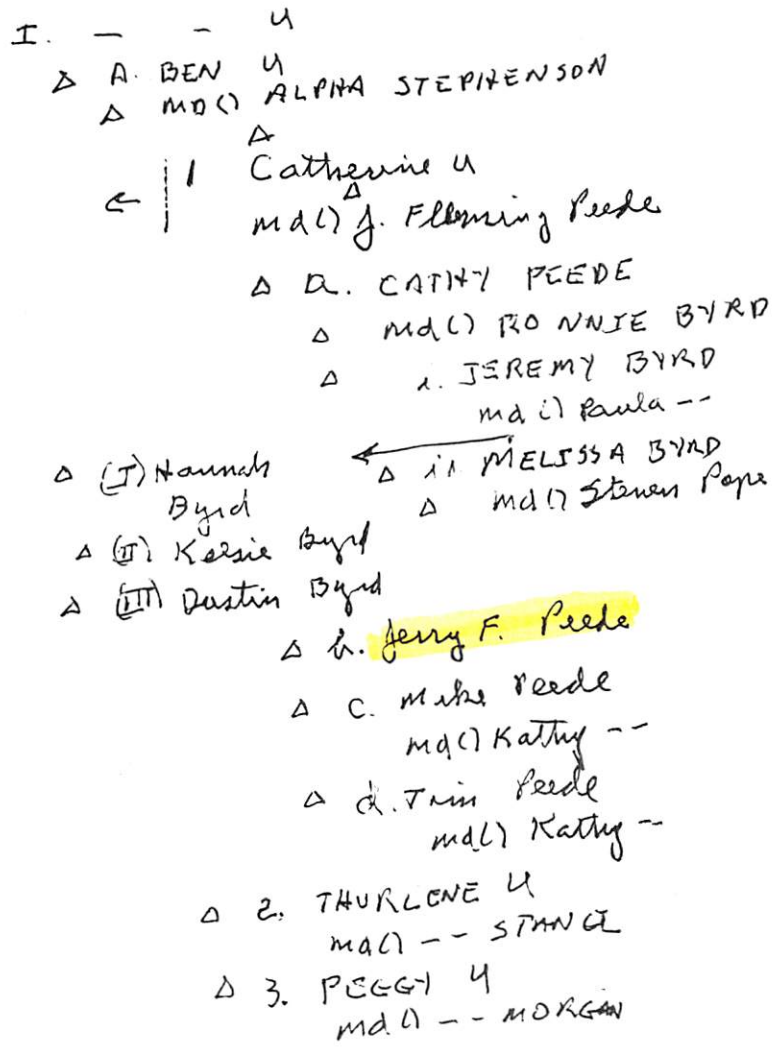 I. — - U
Δ A. BEN U
Δ MD() ALPHA STEPHENSON
Δ
1 Catherine U
Δ
md() J. Flleming Peede
Δ a. CATHY PEEDE
Δ md() RONNIE BYRD
Δ i. JEREMY BYRD
md() Paula --
Δ ii MELISSA BYRD
Δ md() Steven Pope
Δ (I) Hannah
Byrd
Δ (II) Kelsie Byrd
Δ (III) Dustin Byrd
Δ b. Jerry F. Peede
Δ c. Mike Peede
md() Kathy --
Δ d. Tim Peede
md() Kathy --
Δ 2. THURLENE U
md() -- STANCIL
Δ 3. PEGGY U
md. () -- MORGAN